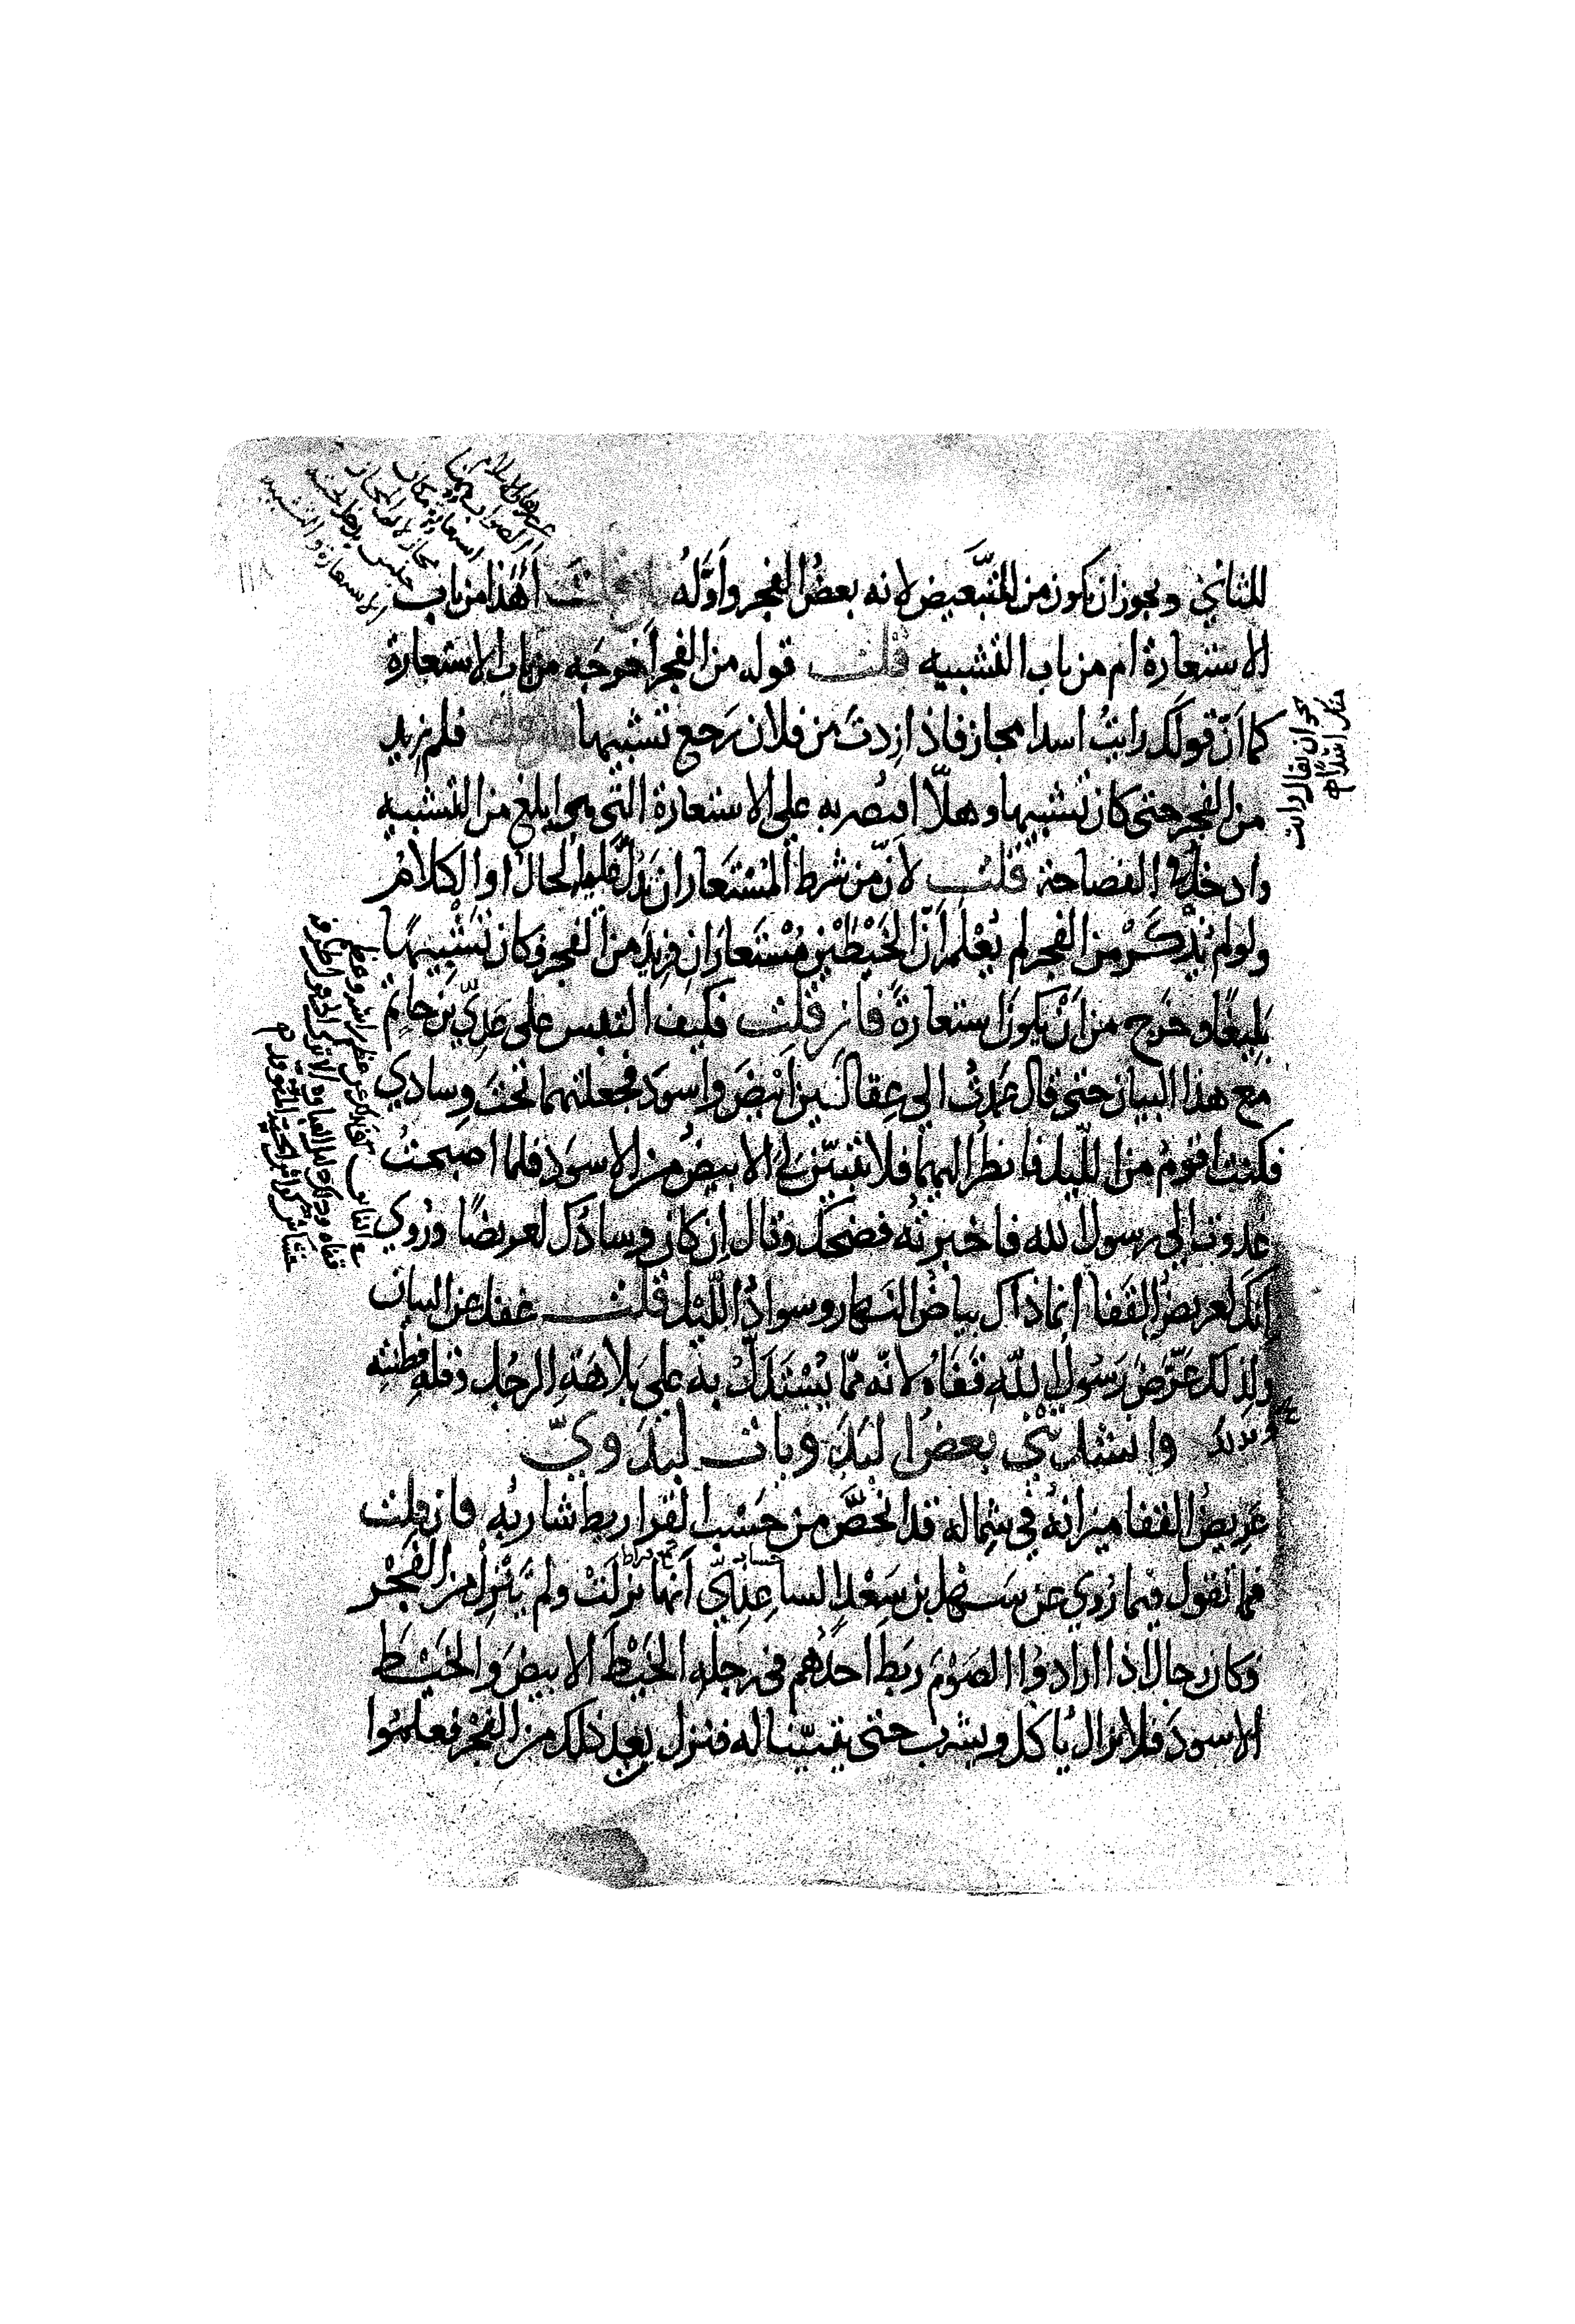 للثاني ويجوز ان يكون من للتبعيض لانه بعض الفجر واوّله فان قلت أهذا من باب
الاستعارة ام من باب التشبيه قلت قوله من الفجر أخرجه من باب الاستعارة
كما أنّ قولك رايتُ اسدا مجاز فاذا زدتَ من فلان رَجع تشبيها فان قلت فلم زيد
من الفجر حتى كان تشبيها وهلّا اقتصر به على الاستعارة التي هي ابلغ من التشبيه
وادخل في الفصاحة قلت لانّ من شرط المُستَعار ان يَدُلّ عليه الحالُ او الكلامُ
ولو لم يُذْكَرْ من الفجر لم يُعْلَم أنّ الخَيْطَيْن مُسْتَعارَان فزيدَ من الفجر فكان تشْبِيهًا
بليغًا وخَرج من انْ يكون استعارةً فان قلت فكيف التبس على عَدِيّ بنِ حاتِمٍ
مع هذا البيان حتى قال عَمدتُ الى عِقالَيْن أبْيضَ واسودَ فجعلتهما تحْتَ وِسادي
فكنت اقومُ من اللّيل فانظُر اليهما فلا يتبيّن لي الابيضُ من الاسود فلما اصبحتُ
غدوتُ إلى رسول الله فاخبرتُه فضحك وقال إن كان وِسادُك لعريضًا ورُوِي
إنّك لعريضُ القَفا انما ذاك بياضُ النهار وسوادُ اللّيل قلت غفل عن البيان
ولذلك عَرّضَ رَسُولُ اللّهِ قفَاهُ لانّه ممّا يُسْتَدَلّ به على بَلاهَةِ الرجُل وقلةِ فطنتِه
وانشدتْني بعضُ البَدَويّاتِ لبدَويّ
عَرِيضُ القفا ميزانهُ في شِماله قد انحَصَّ من حَسْب القراريط شاربُه فان قلت
فما تقول فيما رُوِي عن سَهْل بن سَعْدٍ الساعِدِيّ أنها نزلَتْ ولم يَنْزِلْ من الفَجْر
وكان رجال اذا ارادوا الصَوْمَ ربَط احدُهم في رجله الخَيْطَ الابيضَ والخَيْطَ
الاسودَ فلا يزال يأكل ويشرب حتى يتبيّنا له فنزل بعد ذلك من الفجر فعلموا